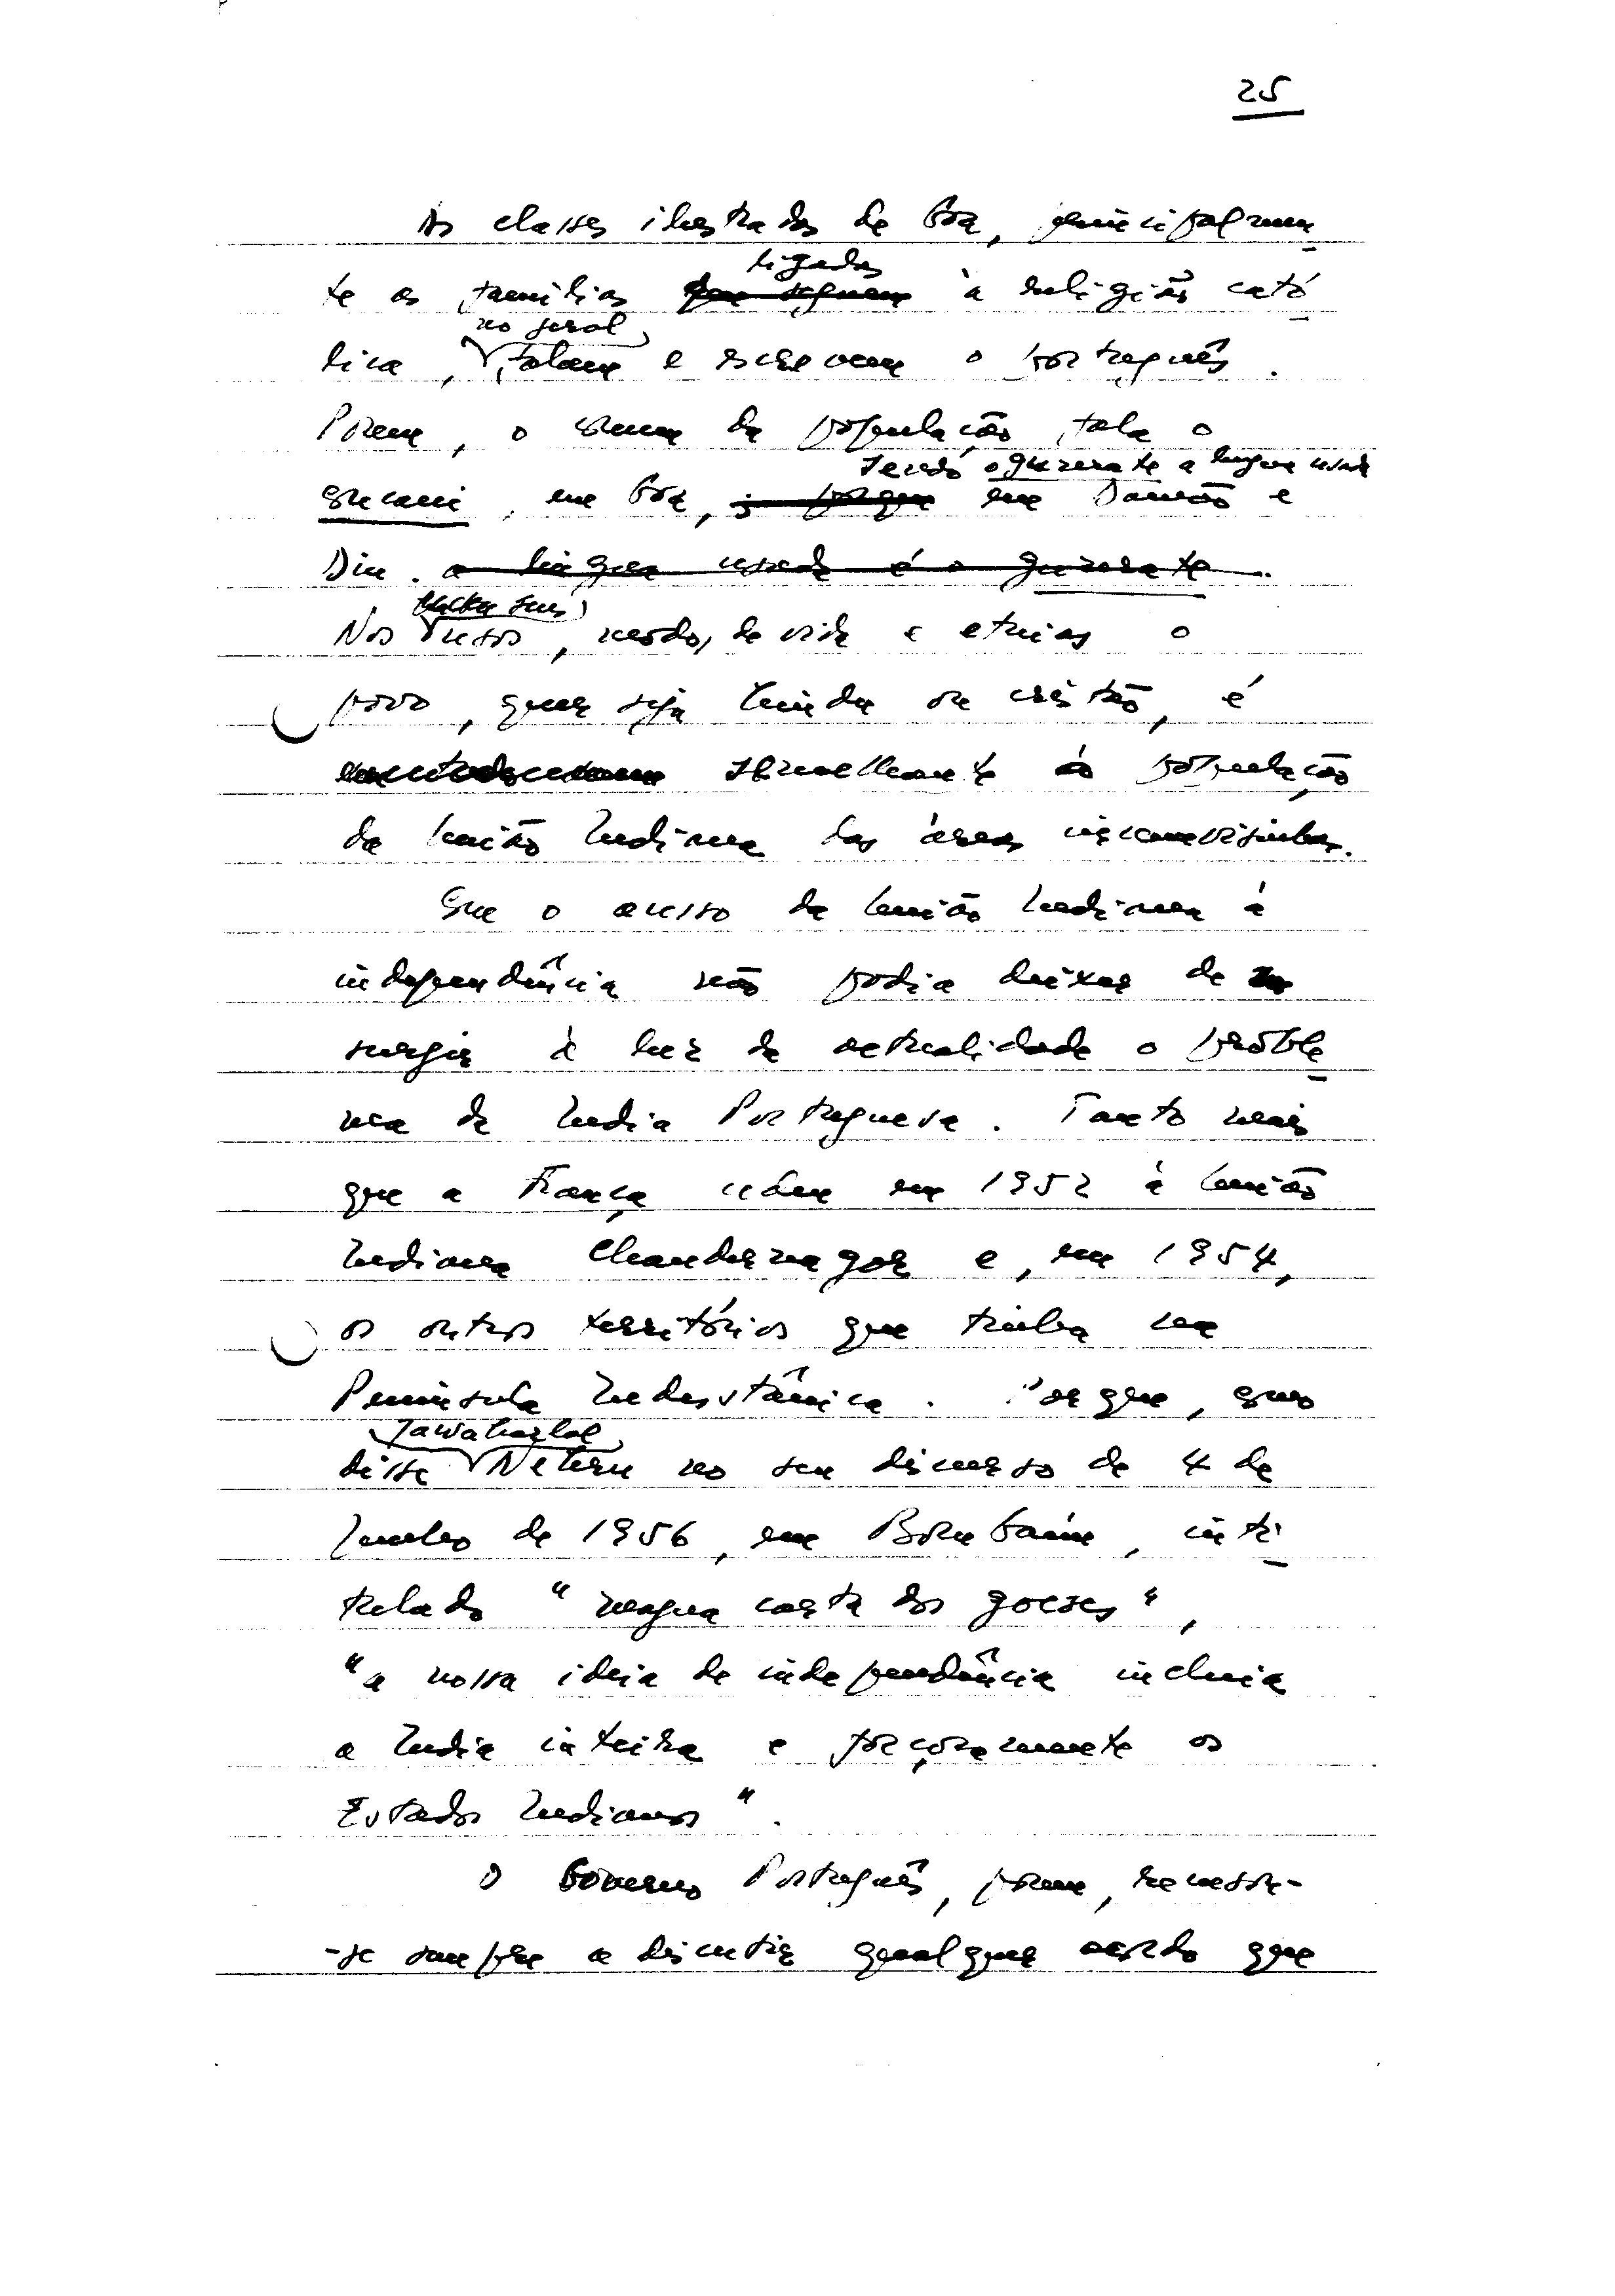 25
As classes ilustradas de Goa, principalmen
te as famílias que seguem ligadas à religião cató
lica, no geral, falam e escrevem o português.
Porem, o comum da população fala o
concani, em Goa, ; porque sendo o guzerate a língua usada em Damão e
Diu. a língua usada é o guzerate.
Nos usos, modos de vida e etnias o
povo, quer seja hindu ou cristão, é
semelhante à população
da União Indiana das áreas circunvisinhas.
Que o acesso da União Indiana à
independência não podia deixar de
surgir à luz da actualidade o proble
ma da India Portuguesa. Tanto mais
que a França cedeu em 1952 à União
Indiana Chandernagor e, em 1954,
os outros territórios que tinha na
Península Indostânica. Porque, como
disse Jawaharlal Nehru no seu discurso de 4 de
Junho de 1956, em Bombaim, inti
tulado "magna carta dos goeses",
"a nossa ideia de independência incluia
a India inteira e forçosamente os
Estados Indianos".
O Governo Português, porem, recusou-
-se sempre a discutir qualquer acordo que